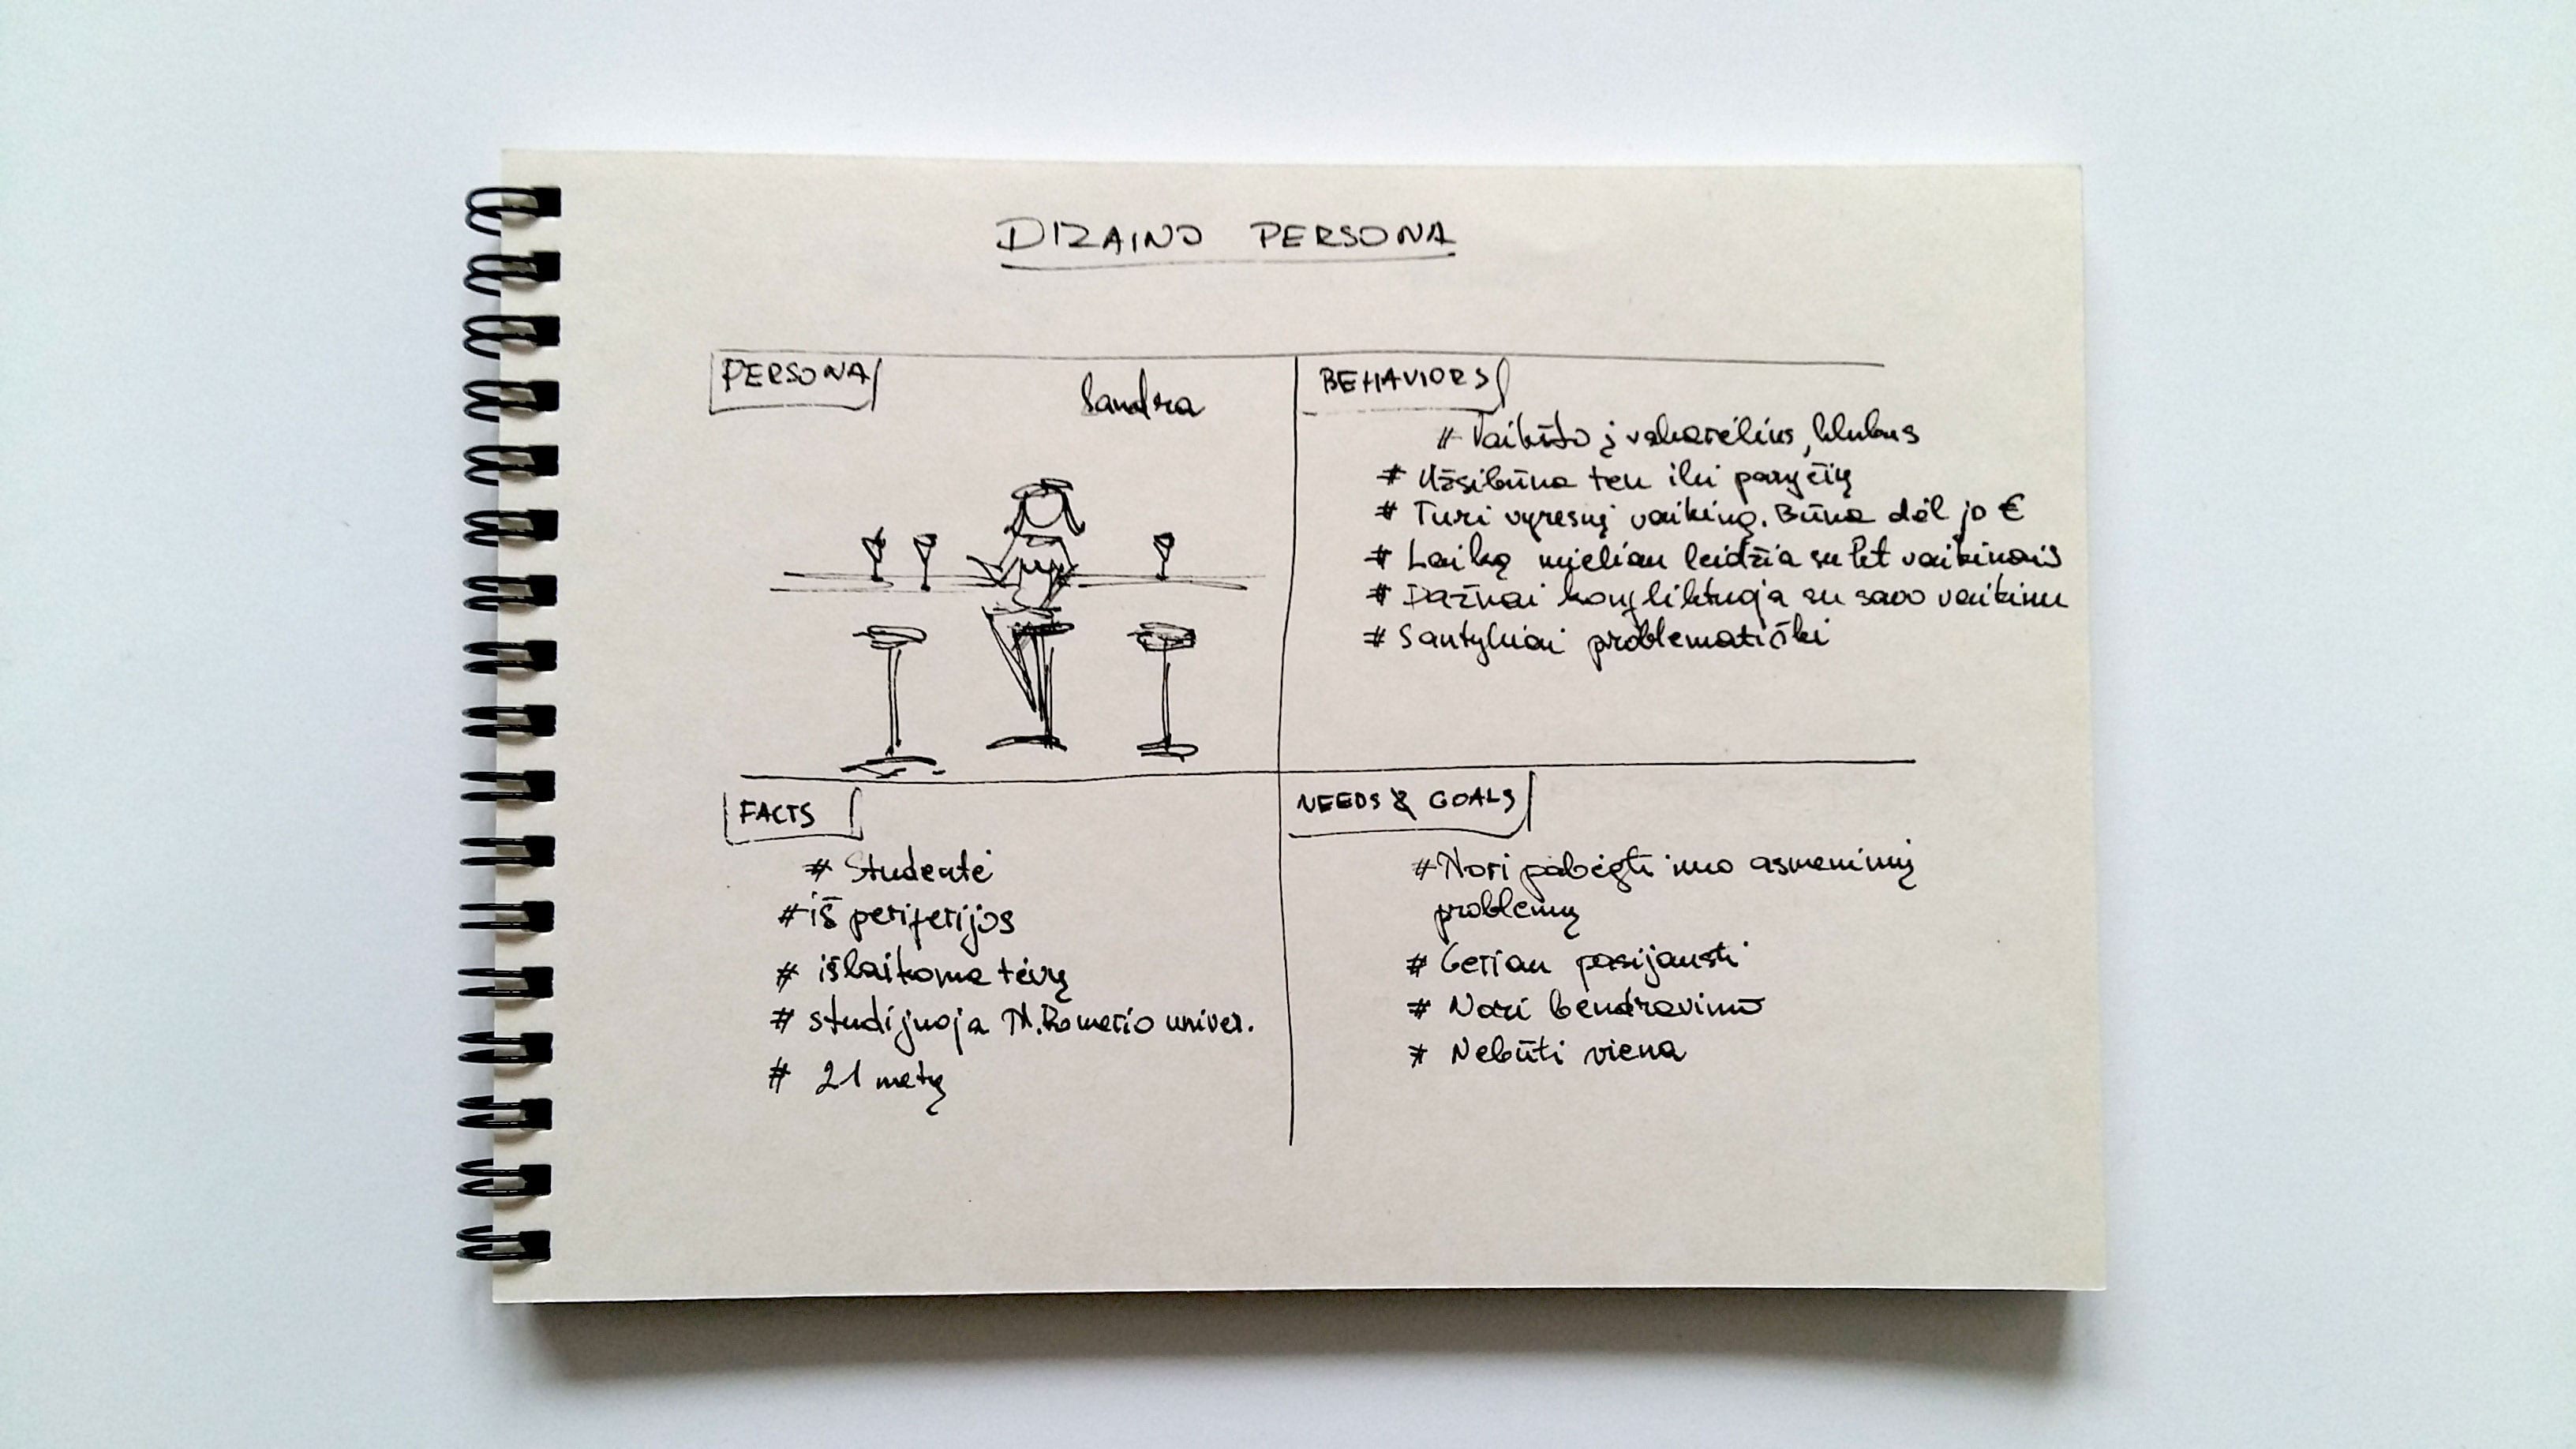 DIZAINO PERSONA
PERSONA
Sandra
BEHAVIORS
# Vaikšto į vakarėlius, klubus
# Užsibūna ten iki paryčių
# Turi vyresnį vaikiną. Būna dėl jo €
# Laiką mieliau leidžia su kt vaikinais
# Dažnai konfliktuoja su savo vaikinu
# Santykiai problematiški
FACTS
# Studentė
# iš periferijos
# išlaikoma tėvų
# studijuoja M.Romerio univer.
# 21 metų
NEEDS & GOALS
# Nori pabėgti nuo asmeninių
problemų
# Geriau pasijausti
# Nori bendravimo
# Nebūti viena